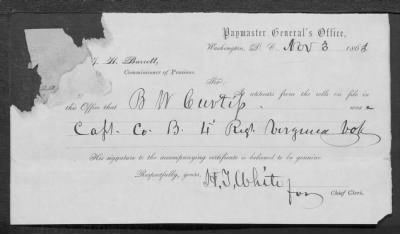 Paymaster General's Office,
Washington, D. C. Nov 3 186
J. H. Barrett,
Commissioner of Pensions.
Sir:
It appears from the rolls on file in
this Office that B W Curtiss was a
Capt. Co. B. 4" Regt. Virginia Vols
His signature to the accompanying certificate is believed to be genuine
Respectfully, yours,
H. J. White
for Chief Clerk.